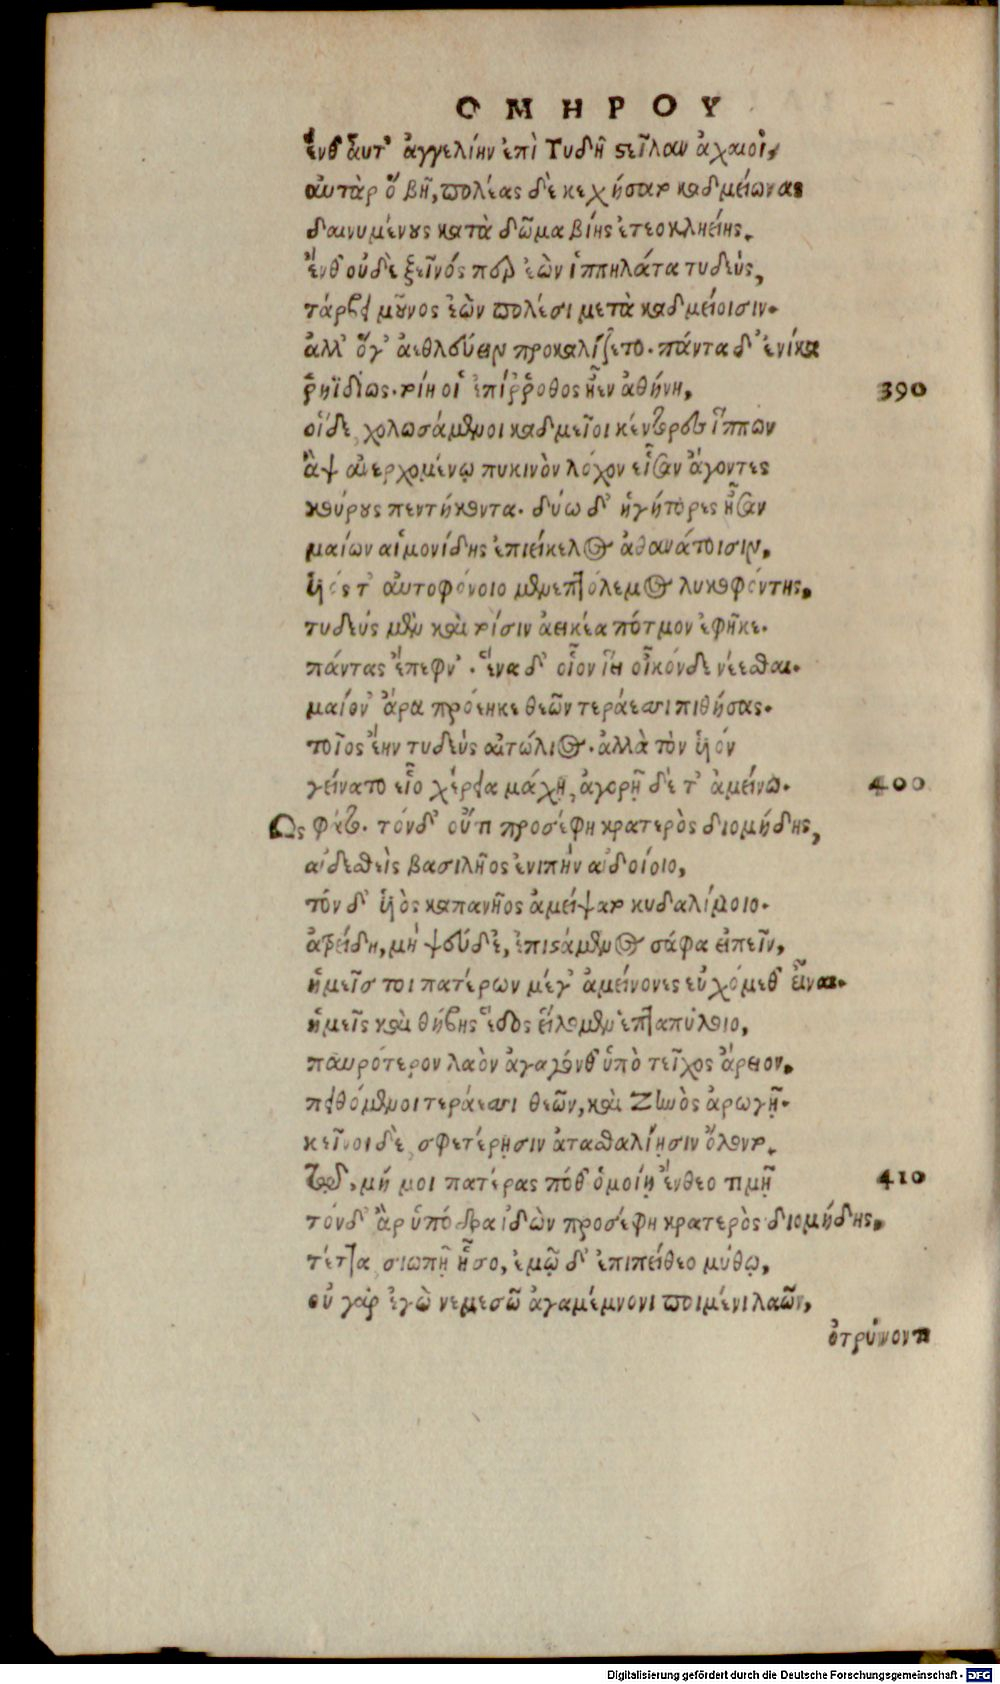 ΟΜΗΡΟΥ
ἔνθ' αὖτ' ἀγγελίην ἐπὶ Τυδῆ στεῖλαν ἀχαιοὶ,
αὐτὰρ ὃ βῆ, πολέας δὲ κιχήσατο καδμείωνας
δαινυμένους κατὰ δῶμα βίης ἐτεοκληείης.
ἔνθ' οὐδὲ ξεῖνός περ ἐὼν ἱππηλάτα τυδεὺς,
τάρβει μοῦνος ἐὼν πολέσι μετὰ καδμείοισιν.
ἀλλ' ὅγ' ἀεθλεύειν προκαλίζετο. πάντα δ' ἐνίκα
ῥηϊδίως. τοίη οἱ ἐπίῤῥοθος ἦεν ἀθήνη,
390
οἵδε χολωσάμενοι καδμεῖοι κέντορες ἵππων
ἂψ ἀνερχομένῳ πυκινὸν λόχον εἷσαν ἄγοντες
κούρους πεντήκοντα. δύω δ' ἡγήτορες ἦσαν
μαίων αἱμονίδης ἐπιείκελος ἀθανάτοισιν,
υἱός τ' αὐτοφόνοιο μενεπτόλεμος λυκοφόντης,
τυδεὺς μὲν καὶ τοῖσιν ἀεικέα πότμον ἐφῆκε.
πάντας ἔπεφν'. ἕνα δ' οἶον ἵει οἶκόνδε νέεσθαι.
μαίον' ἄρα προέηκε θεῶν τεράεσσι πιθήσας.
τοῖος ἔην τυδεὺς αἰτώλιος. ἀλλὰ τὸν υἱόν
γείνατο εἷο χέρεια μάχῃ, ἀγορῇ δέ τ' ἀμείνω.
400
Ὣς φάτο. τόνδ' οὔτι προσέφη κρατερὸς διομήδης,
αἰδεσθεὶς βασιλῆος ἐνιπὴν αἰδοίοιο,
τόν δ' υἱὸς καπανῆος ἀμείψατο κυδαλίμοιο.
ἀτρείδη, μὴ ψεύδε', ἐπιστάμενος σάφα εἰπεῖν,
ἡμεῖς τοι πατέρων μέγ' ἀμείνονες εὐχόμεθ' εἶναι.
ἡμεῖς καὶ θήβης ἕδος εἵλομεν ἑπταπύλοιο,
παυρότερον λαὸν ἀγαγόνθ' ὑπὸ τεῖχος ἄρειον.
πειθόμενοι τεράεσσι θεῶν, καὶ Ζηνὸς ἀρωγῇ.
κεῖνοι δὲ σφετέρῃσιν ἀτασθαλίῃσιν ὄλοντο.
τῷ, μή μοι πατέρας ποθ' ὁμοίῃ ἔνθεο τιμῇ
410
τόνδ' ἂρ ὑπόδρα ἰδὼν προσέφη κρατερὸς διομήδης,
τέττα σιωπῇ ἧσο, ἐμῷ δ' ἐπιπείθεο μύθῳ,
οὐ γὰρ ἐγὼ νεμεσῶ ἀγαμέμνονι ποιμένι λαῶν,
ὀτρύνοντι
Digitalisierung gefördert durch die Deutsche Forschungsgemeinschaft - DFG